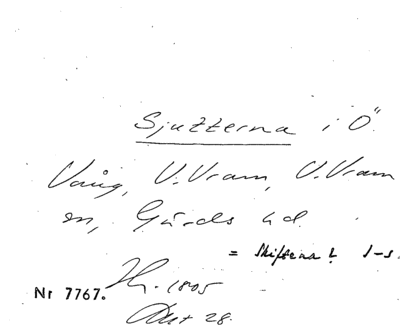 Sjutterna i Ö.
Vång, V. Vram, V. Vram
sn, Gärds hd.
= Skiftena? 1-s.
Nr 7767. Hr. 1805
Akt 28.